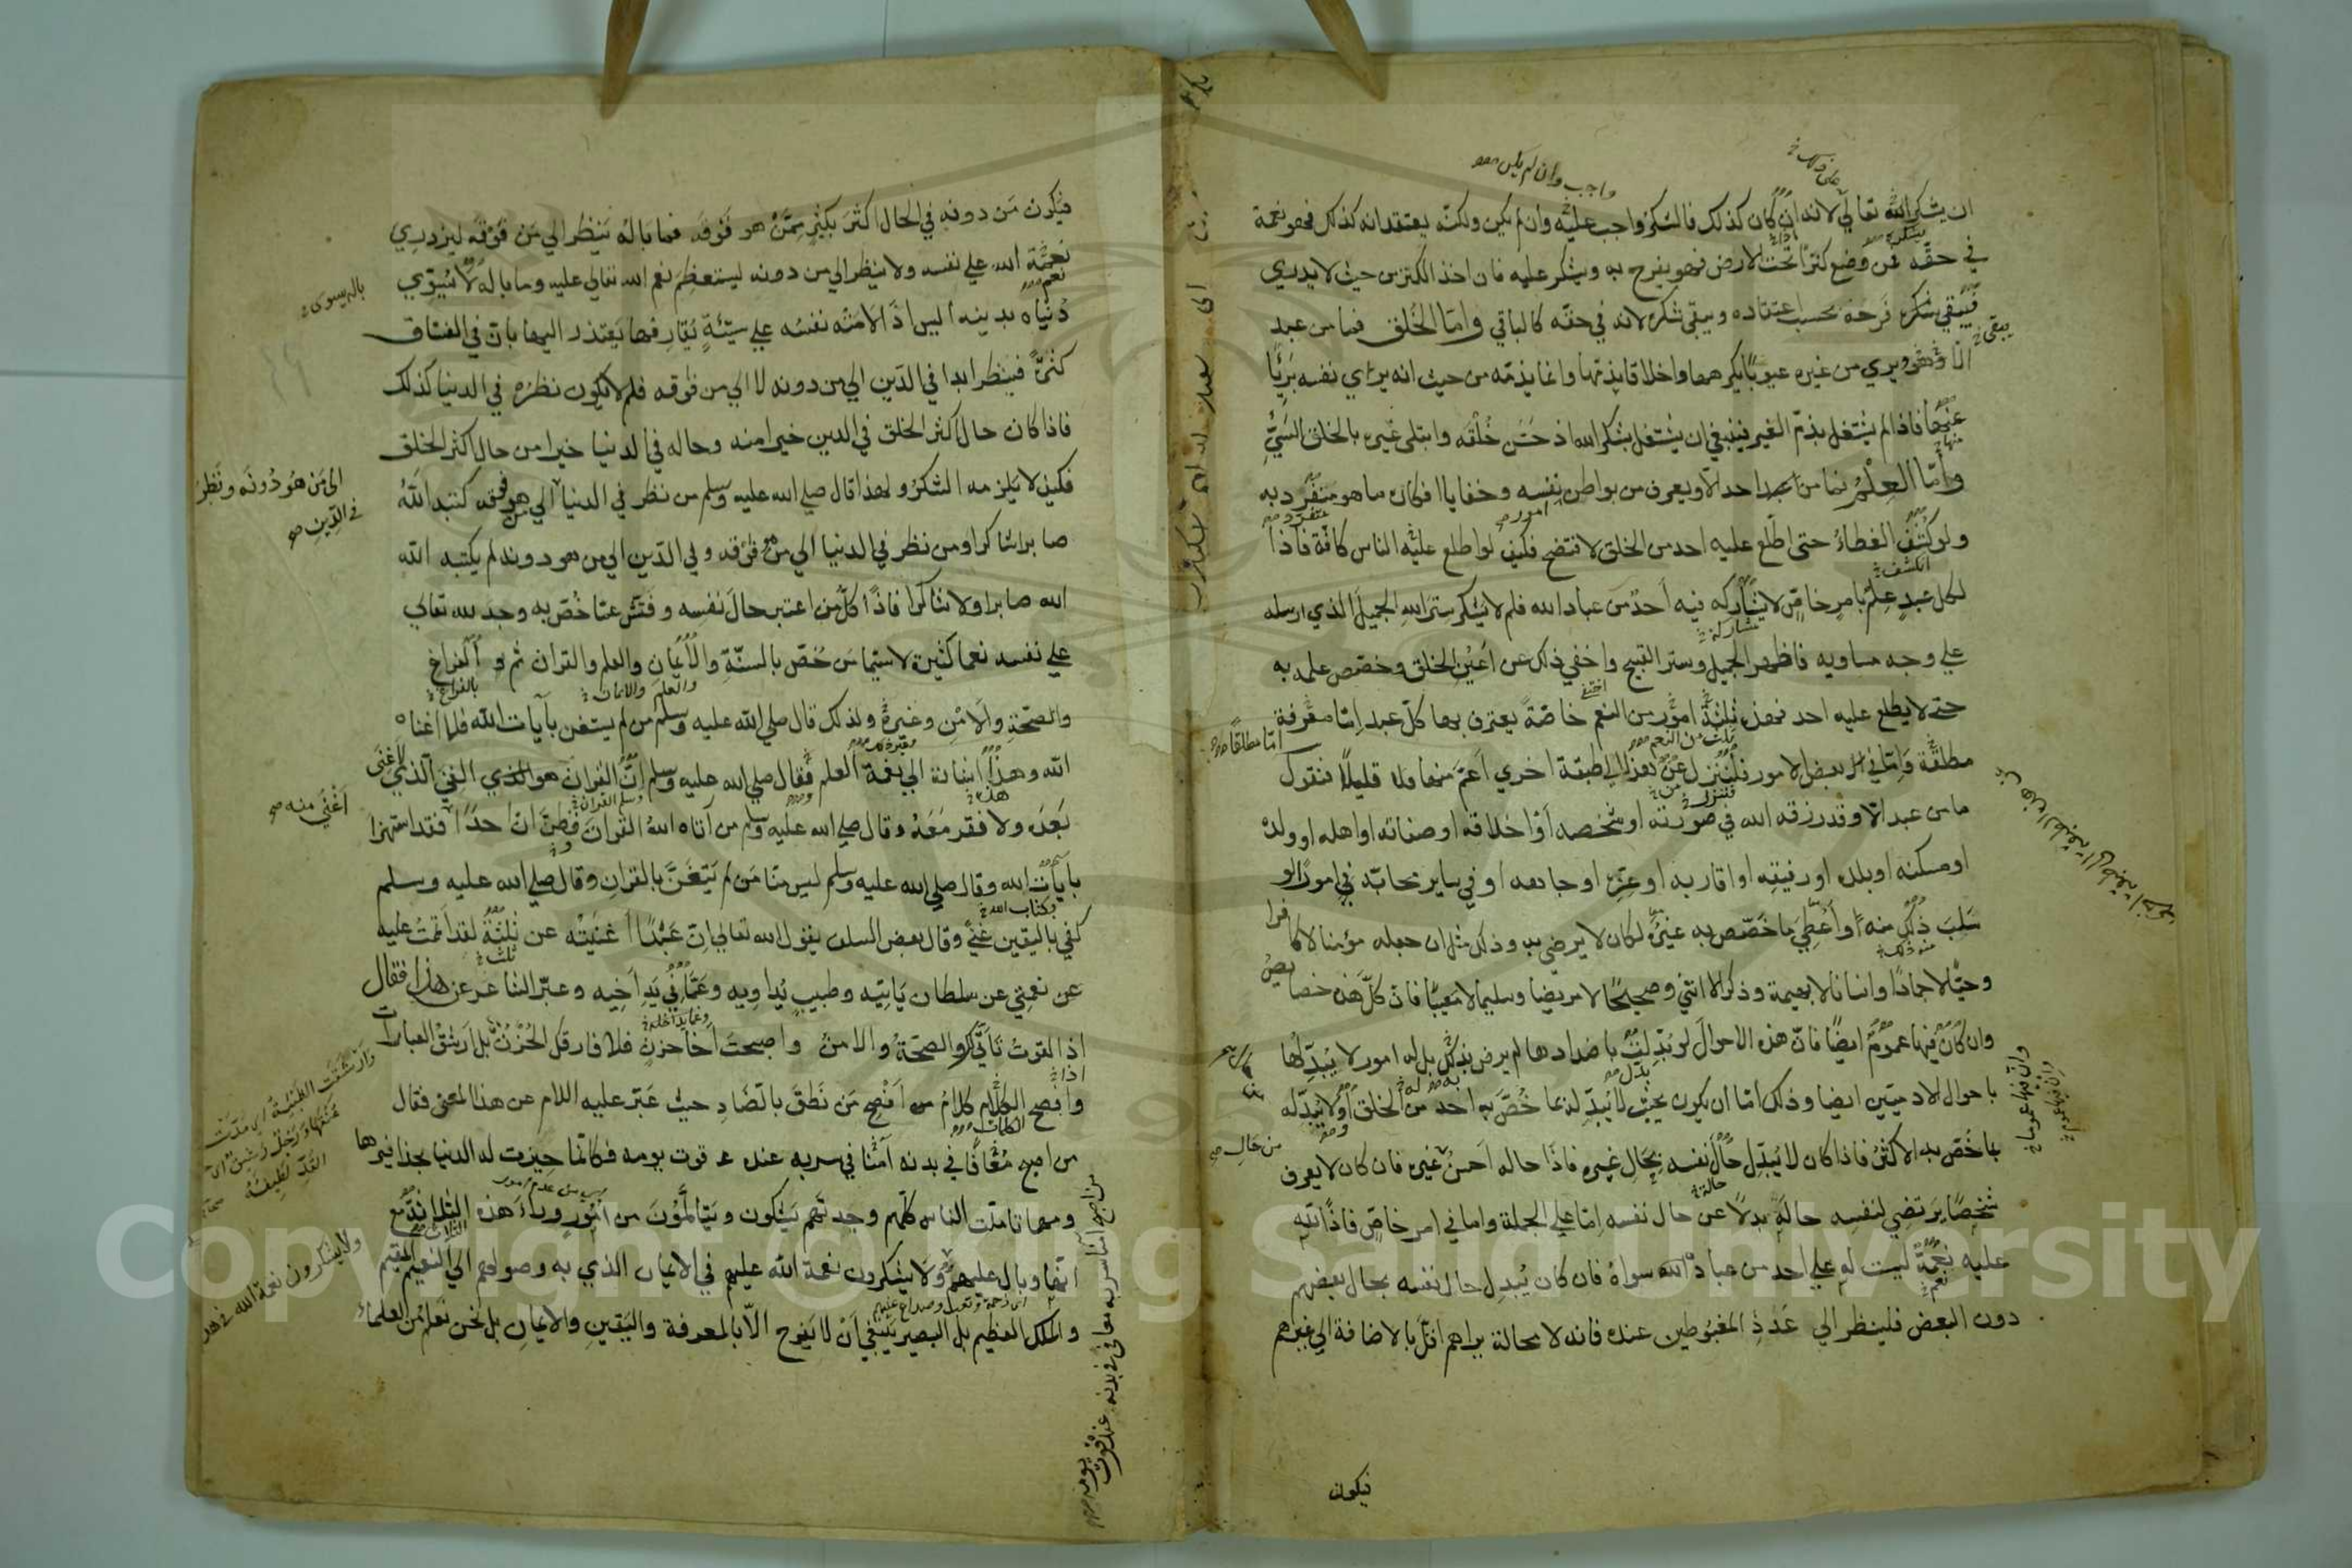 ان يشكر الله تعالي لانه ان كان كذلك فالشكر واجب عليه وان لم يكن ولكنه يعتقد انه كذلك فهو نعمة
في حقه فمن وضع كنزا تحت الارض فهو يفرح به ويشكر عليه فان اخذ الكنز من حيث لا يدري
فيبقي شكره فرحه بحسب اعتقاده ويبقي شكره لانه في حقه كالباقي واما الخلق فما من عبد
الا وهو ويري من غيره عيوبا يكرهها واخلاقا يذمها وانما يذمه من حيث انه يري نفسه بريا
عنها فاذا لم يشتغل بذم الغير فينبغي ان يشتغل بشكر الله اذ حسن خلقه وابتلي غيره بالخلق السيئ
واما العلم فما من احد الا ويعرف من بواطن نفسه وخفايا افكاره ما هو منفرد به
ولو كشف الغطاء حتى اطلع عليه احد من الخلق لافتضح فكيف لو اطلع عليه الناس كافة فاذا
لكل عبد علم بامر خاص لا يشاركه فيه احد من عباد الله فلم لا يشكر ستر الله الجميل الذي ارسله
علي وجه مساويه فاظهر الجميل وستر القبيح واخفي ذلك عن اعين الخلق وخصص علمه به
حتي لا يطلع عليه احد فهذه ثلثة امور من النعم خاصة يعترف بها كل عبد اما معرفة
مطلقة واما في بعض الامور فلننزل عن هذا الي طبقة اخري اعم منها ولا قليلا فنقول
ما من عبد الا وقد رزقه الله في صورته او شخصه او اخلاقه او صفاته او اهله او ولده
او مسكنه او بلده او رفيقه او اقاربه او عزه او جاهه او في ساير محابه في امورا لو
سلب ذلك منه او اعطي ما خصص به غيره لكان لا يرضي به وذلك مثل ان جعله مؤمنا لا كافرا
وحيا لا جمادا وانسانا لا بهيمة وذكرا لا انثي وصحيحا لا مريضا وسليما لا معيبا فان كل هذه خصايص
وان كان فيها عموم ايضا فان هذه الاحوال لو بدلت باضدادها لم يرض بذلك بل له امور لا يبدلها
باحوال الادميين ايضا وذلك اما ان يكون بحيث لا يبدله بما خص به احد من الخلق او لا يبدله
بما خص به الاكثر فاذا كان لا يبدل حال نفسه بحال غيره فاذا حاله احسن غيره فان كان لا يعرف
شخصا يرتضي لنفسه حاله بدلا عن حال نفسه اما علي الجملة واما في امر خاص فاذا لله
عليه نعمة ليست له علي احد من عباد الله سواه فان كان يبدل حال نفسه بحال بعضهم
دون البعض فلينظر الي عدد المغبوطين عنده فانه لا محالة يراهم اقل بالاضافة الي غيرهم
فيكون
واجب وان لم يكن
من حال
فيكون من دونه في الحال اكثر بكثير ممن هو فوقه فما باله ينظر الي من فوقه ليزدري
نعمة الله علي نفسه ولا ينظر الي من دونه ليستعظم نعم الله تعالي عليه وما باله لا يسوي
دنياه بدينه اليس اذا لامته نفسه علي سيئة يقارفها يعتذر اليها بان في الفساق
كثرة فينظر ابدا في الدين الي من دونه لا الي من فوقه فلم لا يكون نظره في الدنيا كذلك
فاذا كان حال اكثر الخلق في الدين خير امنه وحاله في الدنيا خيرا من حال اكثر الخلق
فكيف لا يلزمه الشكر ولهذا قال صلي الله عليه وسلم من نظر في الدنيا الي من هو فوقه كتبه الله
صابرا شاكرا ومن نظر في الدنيا الي من فوقه وفي الدين الي من هو دونه لم يكتبه الله
الله صابرا ولا شاكرا فاذا كل من اعتبر حال نفسه وفتش عما خص به وجد لله تعالي
علي نفسه نعما كثيرة لاسيما من خص بالسنة والايمان والعلم والقران ثم الفراغ
والصحة والامن وغيره ولذلك قال صلي الله عليه وسلم من لم يستغن بآيات الله فلا اغناه
الله وهذا اشارة الي نعمة العلم فقال صلي الله عليه وسلم ان القران هو الغني الذي لا غني
بعده ولا فقر معه وقال صلي الله عليه وسلم من آتاه الله القران فظن ان احدا فقد استهزا
بايات الله وقال صلي الله عليه وسلم ليس منا من لم يتغن بالقران وقال صلي الله عليه وسلم
كفي باليقين غني وقال بعض السلف يقول الله تعالي ان عبدا اغنيته عن ثلثة لقد اتممت عليه
عن نعمتي عن سلطان ياتيه وطبيب يداويه وعما في يد اخيه وعبر الشاعر عن هذا فقال
اذا القوت تاتي لك والصحة والامن واصبحت اخا حزن فلا فارقك الحزن بل ارشق العبارات
وافصح الكلام كلام من افصح من نطق بالضاد حيث عبر عليه اللام عن هذا المعني فقال
من اصبح معافا في بدنه آمنا في سربه عنده قوت يومه فكانما حيزت له الدنيا بحذافيرها
ومهما تاملت الناس كلهم وجدتهم يشكون ويتالمون من امور وراء هذه الثلاث مع
انها وبال عليهم ولا يشكرون نعمة الله عليهم في الايمان الذي به وصولهم الي النعيم المقيم
والملك العظيم بل البصير ينبغي ان لا يفرح الا بالمعرفة واليقين والايمان بل نحن نعلم من العلماء
الي من هو دونه ونظر
في الدين
اغني منه
ولا يشكرون نعمة الله في هذ
من اصبح آمنا في سربه معافي في بدنه عنده قوت يومه
Copyright © King Saud University